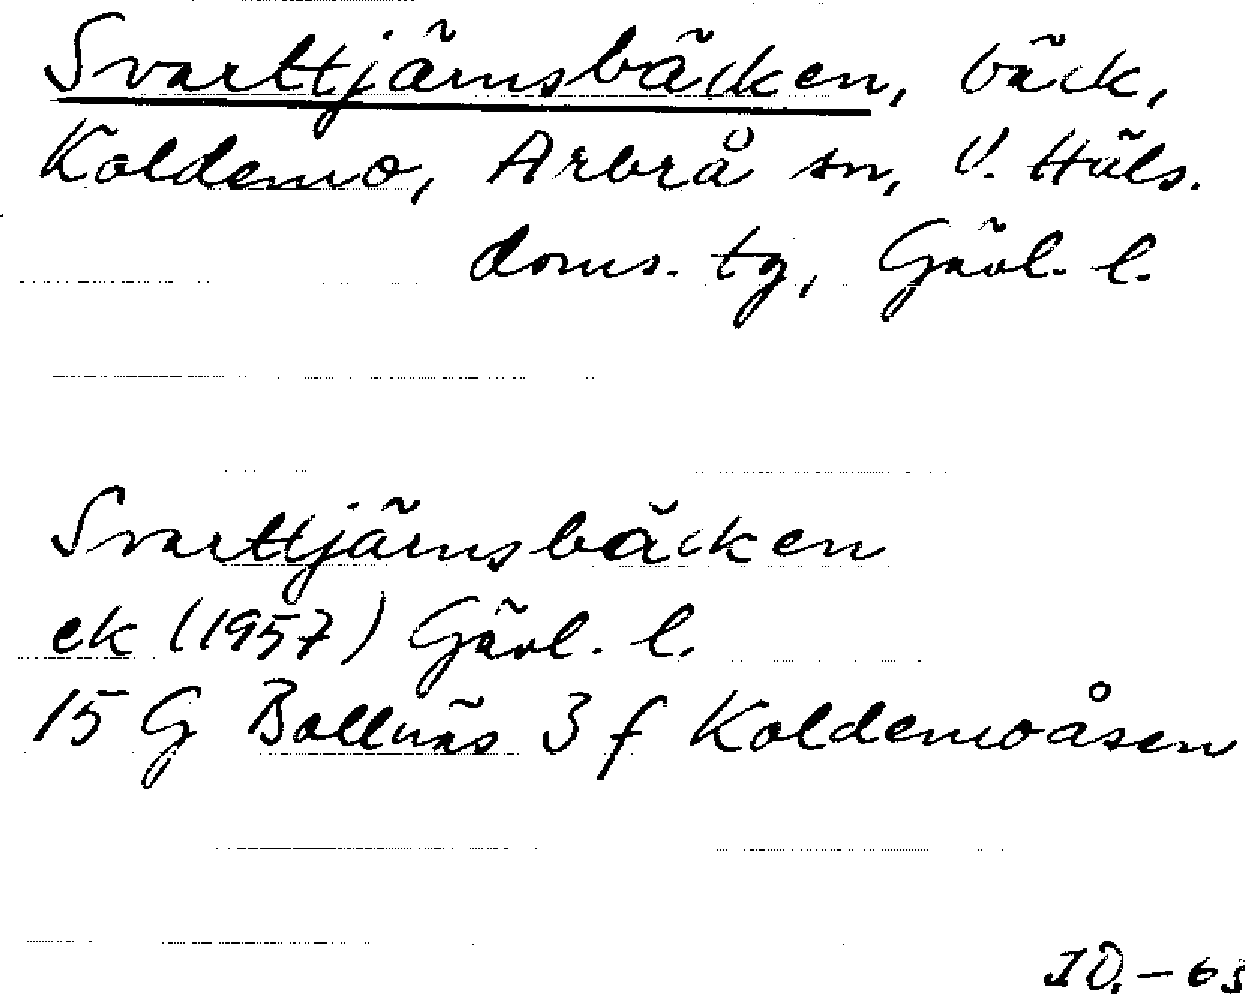 Svarttjärnsbäcken, bäck,
Koldemo, Arbrå sn, V. Häls.
doms. tg, Gävl. l.
Svarttjärnsbäcken
ek (1957) Gävl. l.
15 G Bollnäs 3 f Koldemoåsen